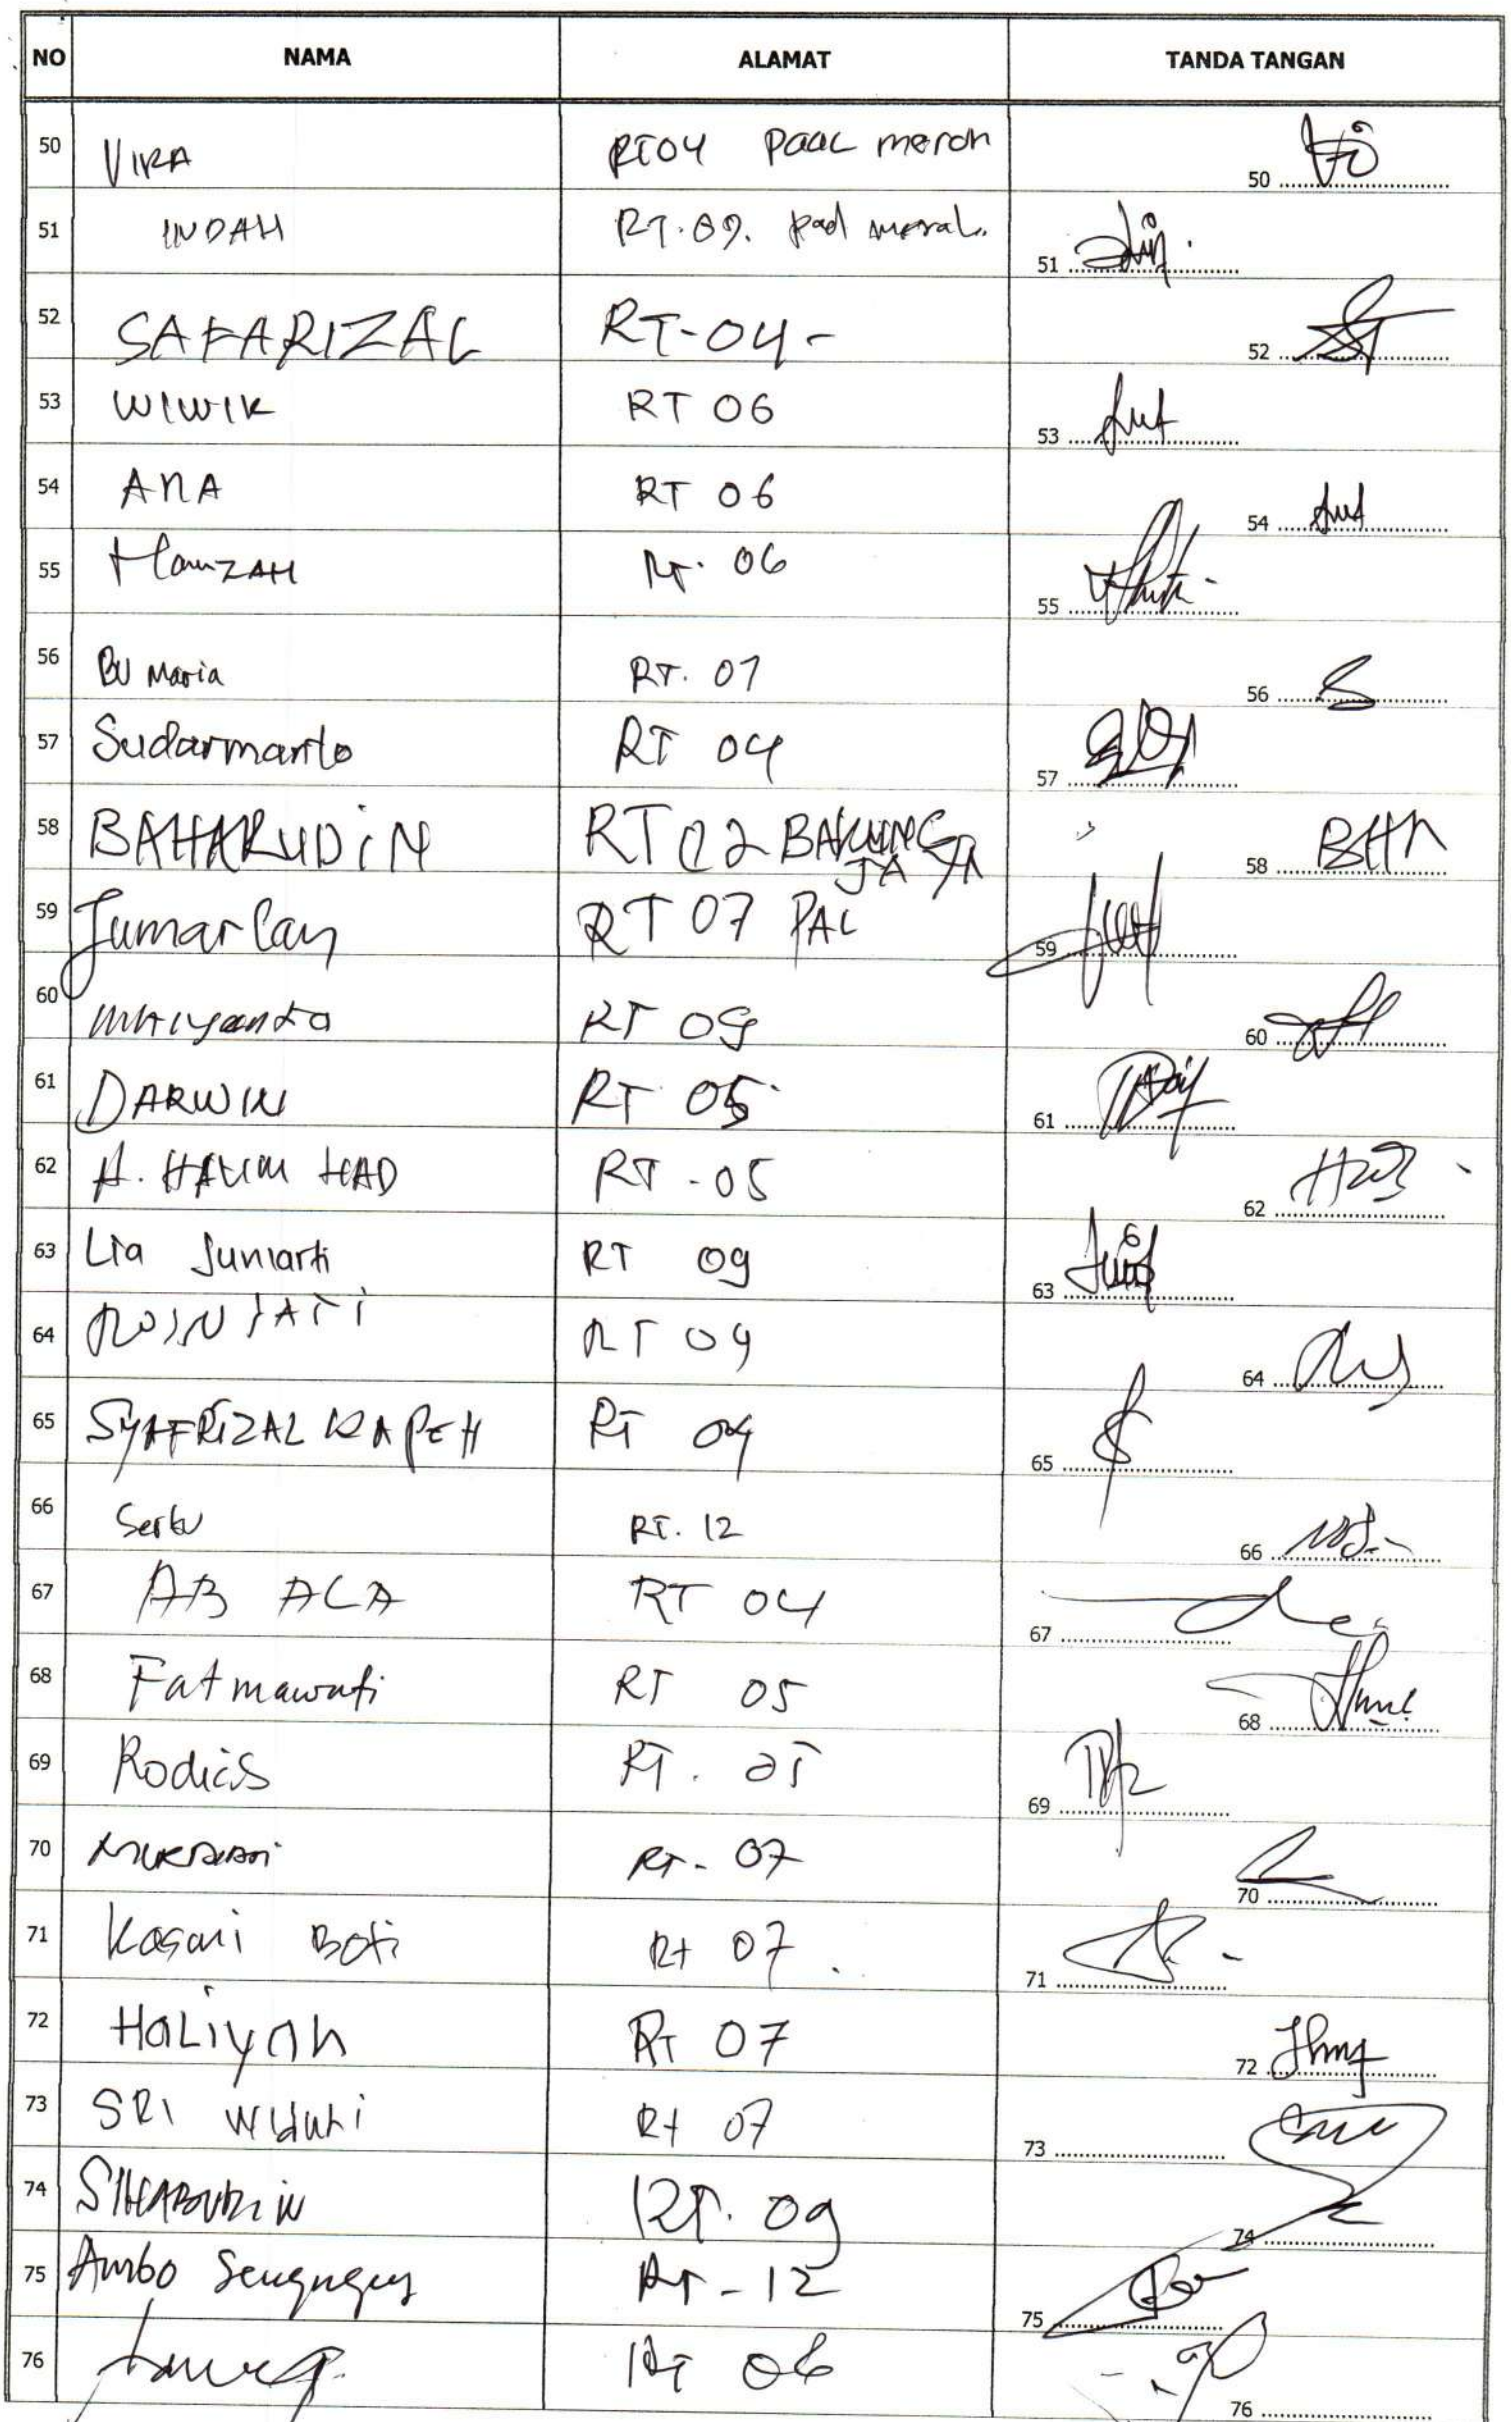 NO NAMA ALAMAT TANDA TANGAN
50 VIRA RT04 Paal merah 50
51 INDAH RT. 09. pal merah. 51
52 SAFARIZAL RT-04- 52
53 WIWIK RT 06 53
54 ANA RT 06 54
55 HamZAH RT. 06 55
56 BU Maria RT. 07 56
57 Sudarmanto RT 04 57
58 BAHARUDiN RT 02 BAKUNG JAYA 58 BHR
59 Jumarlan RT 07 PAL 59
60 RT 09 60
61 DARWIN RT 05 61
62 A. HALIM HAD RT - 05 62
63 Lia Juniarti RT 09 63
64 RT 04 64
65 SYAFRIZAL KAPEH RT 04 65
66 RT. 12 66
67 AB ALA RT 04 67
68 Fatmawati RT 05 68
69 RT. 05 69
70 RT- 07 70
71 Kasani Boti Rt 07 71
72 HaLiyah RT 07 72
73 SRI Rt 07 73
74 RT. 09 74
75 Ambo RT - 12 75
76 RT 06 76